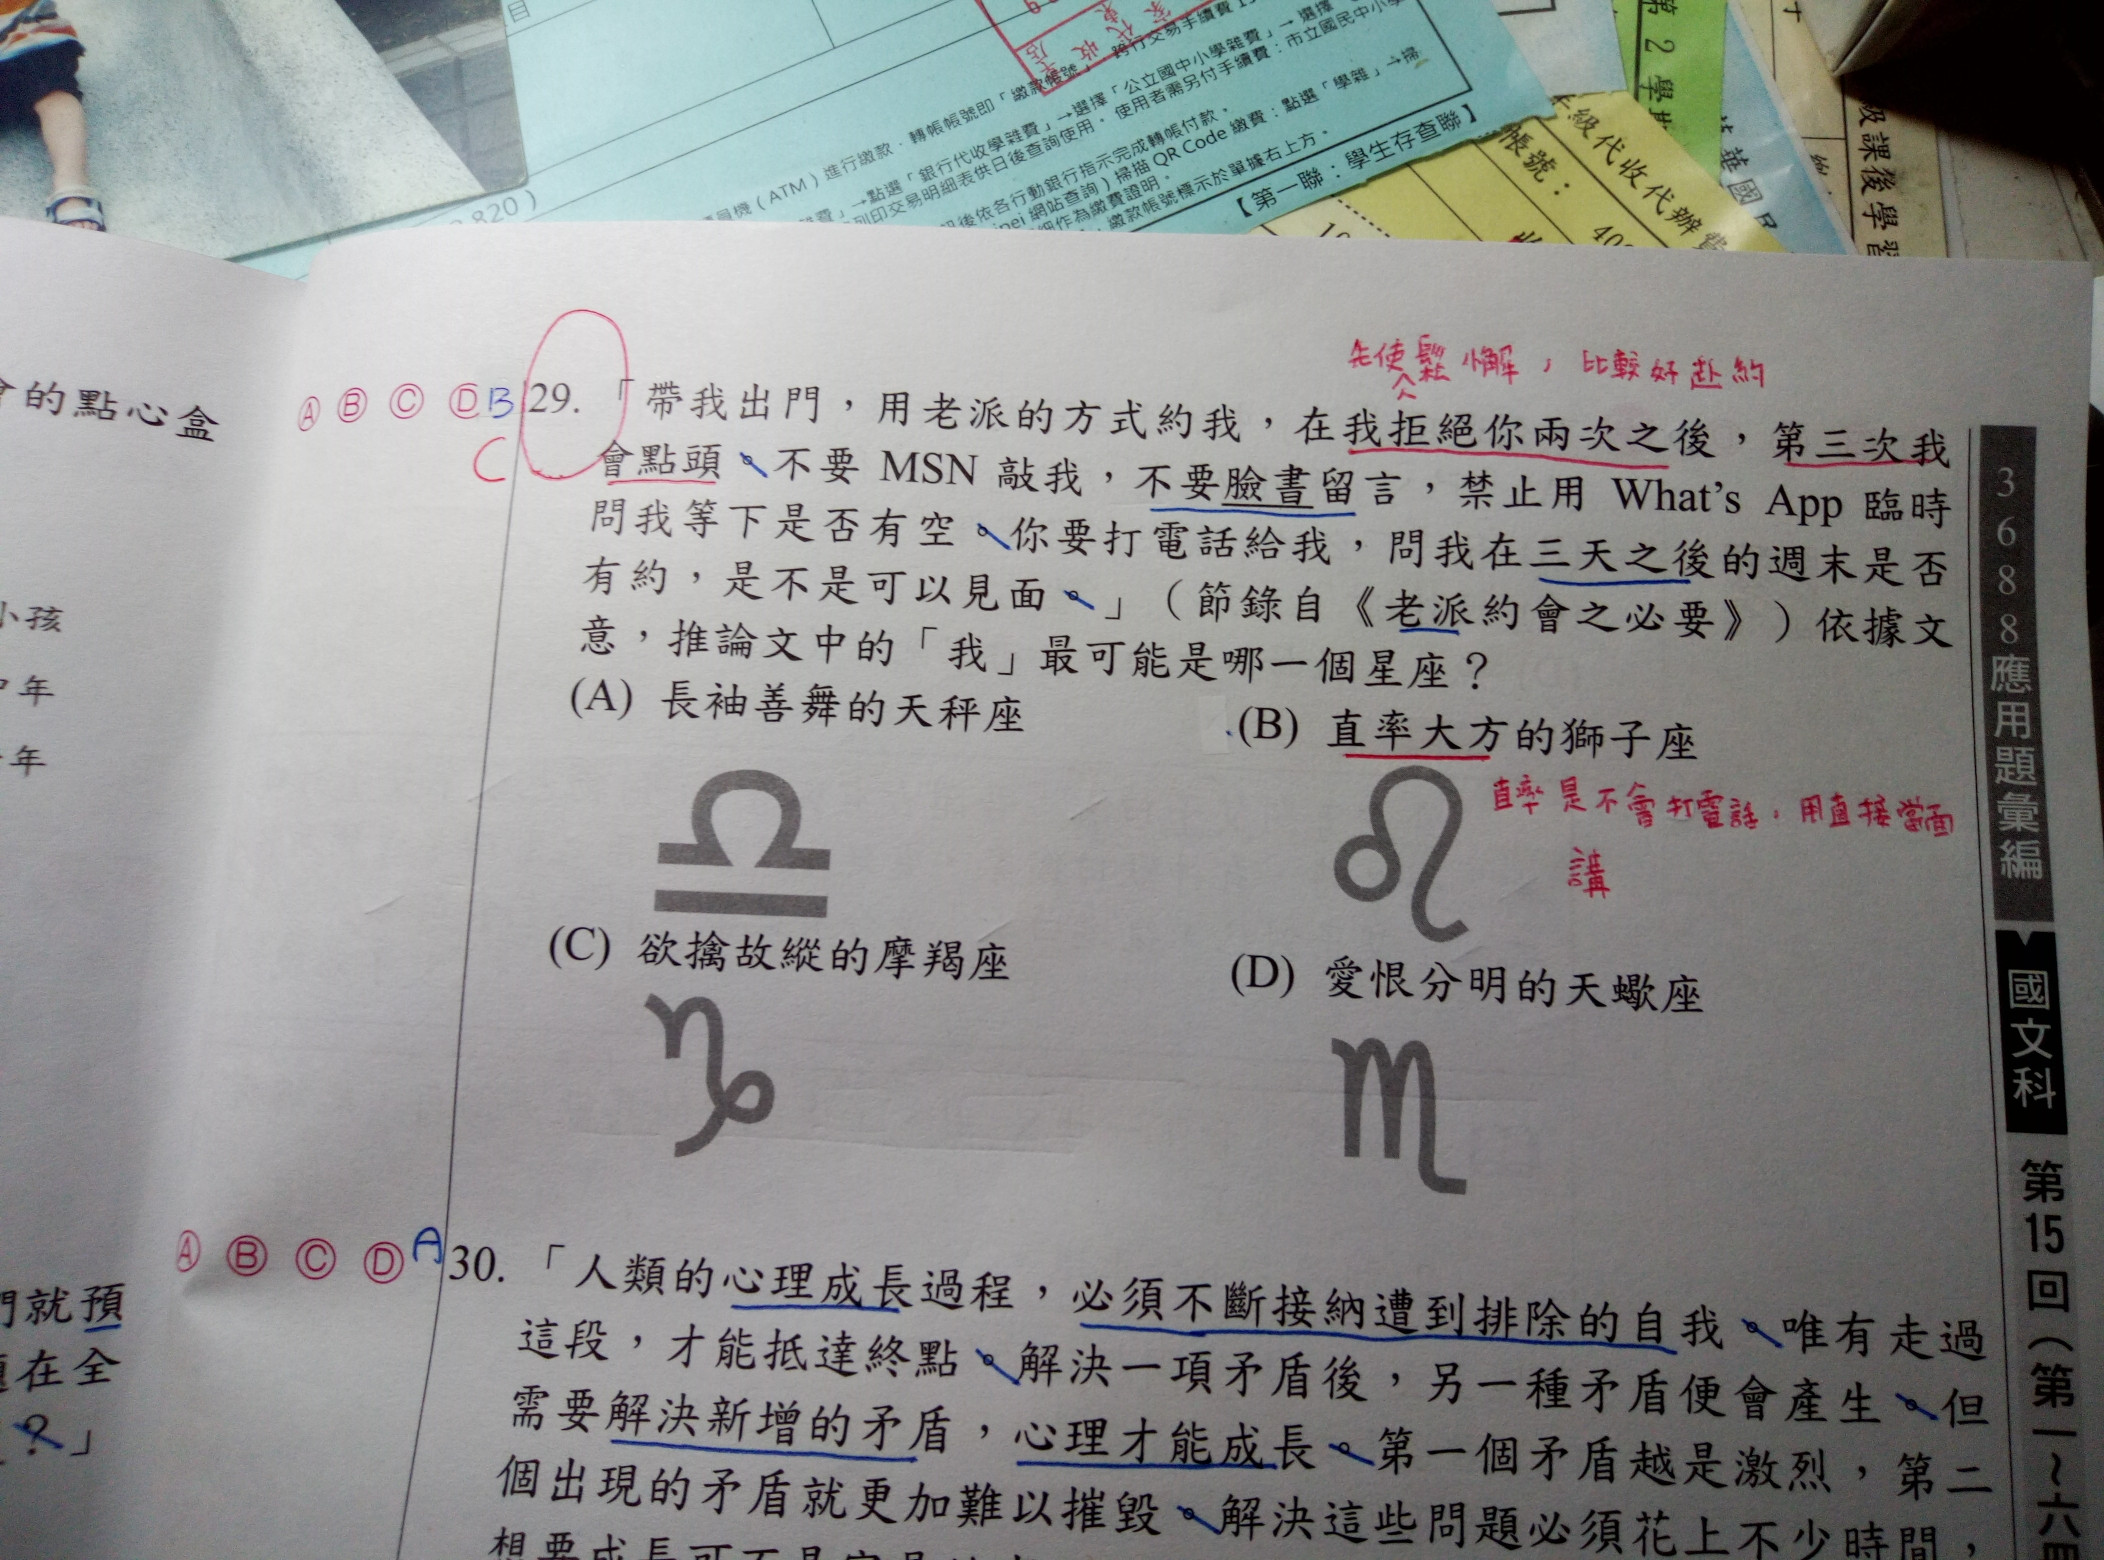 目
機（ATM）進行繳款，轉帳帳號即「繳款帳號」，跨行交易手續費
費」→點選「銀行代收學雜費」→選擇「公立國中小學雜費」→選擇
列印交易明細表供日後查詢使用。使用者需另付手續費：市立國民中小學
後依各行動銀行指示完成轉帳付款。
網站查詢）掃描 QR Code 繳費：點選「學雜」→掃
細作為繳費證明。
，繳款帳號標示於單據右上方。
【第一聯：學生存查聯】
820）
帳號：
級代收代辦費
第 2 學
級課後學習
先使人鬆懈，比較好赴約
Ⓐ Ⓑ Ⓒ Ⓓ B
C
29. 「帶我出門，用老派的方式約我，在我拒絕你兩次之後，第三次我
會點頭。不要 MSN 敲我，不要臉書留言，禁止用 What's App 臨時
問我等下是否有空。你要打電話給我，問我在三天之後的週末是否
有約，是不是可以見面。」（節錄自《老派約會之必要》）依據文
意，推論文中的「我」最可能是哪一個星座？
(A) 長袖善舞的天秤座
(B) 直率大方的獅子座
直率是不會打電話，用直接當面
講
(C) 欲擒故縱的摩羯座
(D) 愛恨分明的天蠍座
Ⓐ Ⓑ Ⓒ Ⓓ A
30. 「人類的心理成長過程，必須不斷接納遭到排除的自我。唯有走過
這段，才能抵達終點。解決一項矛盾後，另一種矛盾便會產生。但
需要解決新增的矛盾，心理才能成長。第一個矛盾越是激烈，第二
個出現的矛盾就更加難以摧毀。解決這些問題必須花上不少時間，
的點心盒
小孩
年
年
就預
在全
？」
3688應用題彙編
國文科
第15回（第一～六